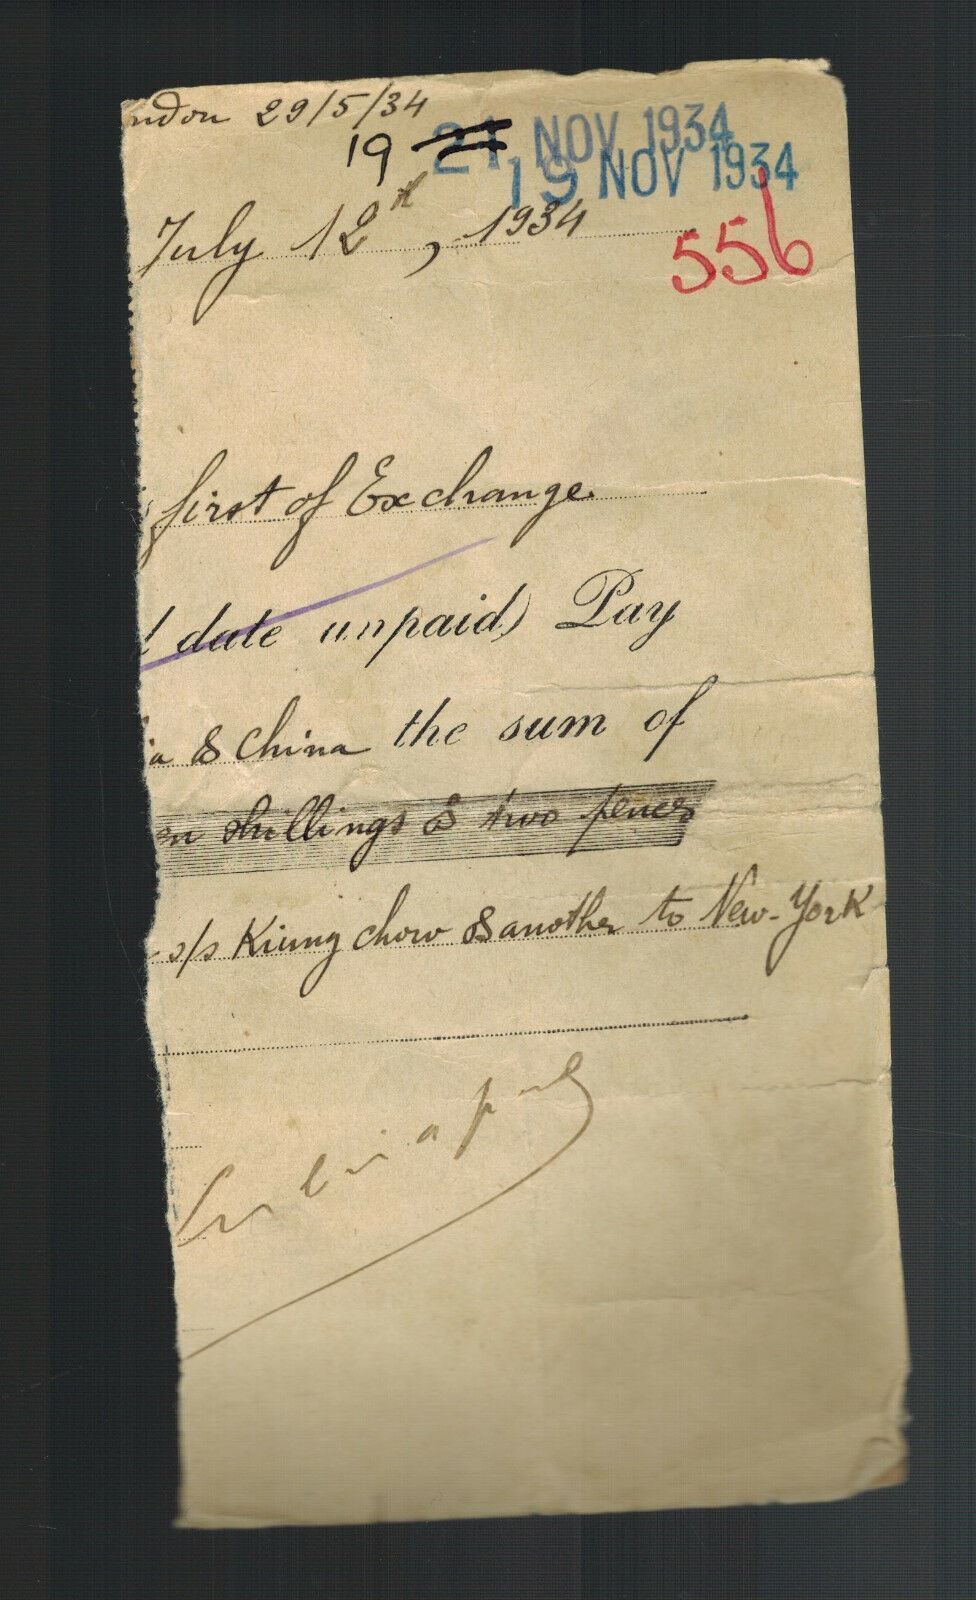 ndon 29/5/34
19 21 NOV 1934
19 NOV 1934
July 12th, 1934
556
first of Exchange
date unpaid) Pay
ia & China the sum of
en shillings & two pence
s/s Kiung chow & another to New-York